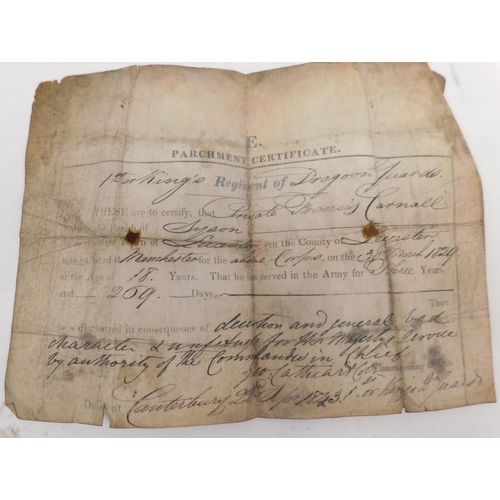 E.
PARCHMENT CERTIFICATE.
1st or King's Regiment of Dragoon Guards.
THESE are to certify, that Private Francis Carnall
Parish of Syson
Town of Leicester in the County of Leicester
was enlisted Manchester for the above Corps, on the March
at the Age of 18. Years. That he has served in the Army for Three Years
and 269. Days.
That
he is discharged in consequence of desertion and general bad
character & unfitness for Her Majesty's Service
by authority of the Commander in Chief
Geo. Cathcart Col. Commanding
Dated at Canterbury Sepr. 1843. 1st or Kings D. Guards